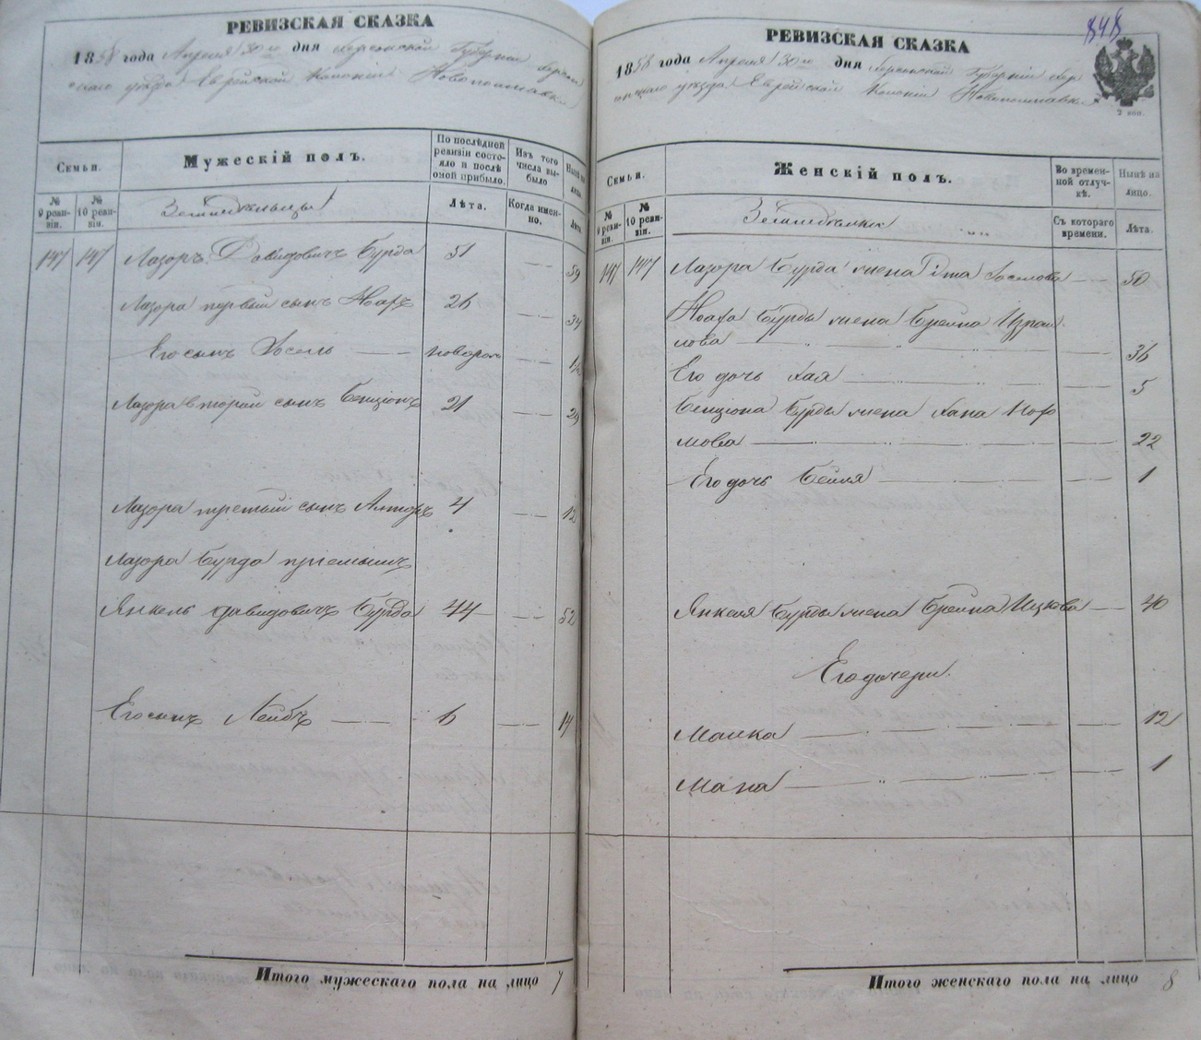 РЕВИЗСКАЯ СКАЗКА
1858 года Апреля 30го дня Херсонской Губернии Херсон
скаго уезда Еврейской Колонии Новополтавки
Семьи.
Мужескій полъ.
По послѣдней ревизіи состояло и послѣ оной прибыло.
Изъ того числа выбыло
Нынѣ на лицо.
№ 9 ревизіи.
№ 10 ревизіи.
Земледельцы
Лѣта.
Когда именно.
Лѣта.
147 147 Лазоръ Давидовичъ Бурда 51 59
Лазора первый сынъ Ноахъ 26 34
Его сынъ Іосель новорож 12
Лазора второй сынъ Бенціонъ 21 29
Лазора третій сынъ 4 12
Лазора Бурда пріемышъ
Янкель Давидовичъ Бурда 44 52
Его сынъ Лейбъ 6 14
Итого мужескаго пола на лицо 7
РЕВИЗСКАЯ СКАЗКА
848
1858 года Апреля 30го дня Херсонской Губерніи Хер
сонскаго уезда Еврейской Колоніи Новополтавки
2 коп.
Семьи.
Женскій полъ.
Во временной отлучкѣ.
Нынѣ на лицо.
№ 9 ревизіи.
№ 10 ревизіи.
Земледелки
Съ котораго времени.
Лѣта.
147 147 Лазора Бурда жена Гита Іоселова 50
Ноаха Бурды жена Брейна Израи
лова 36
Его дочь Хая 5
Бенціона Бурды жена Хана
22
Его дочь Бейля 1
Янкеля Бурды жена Брейна Ицкова 40
Его дочери.
Малка 12
Мана 1
Итого женскаго пола на лицо 8